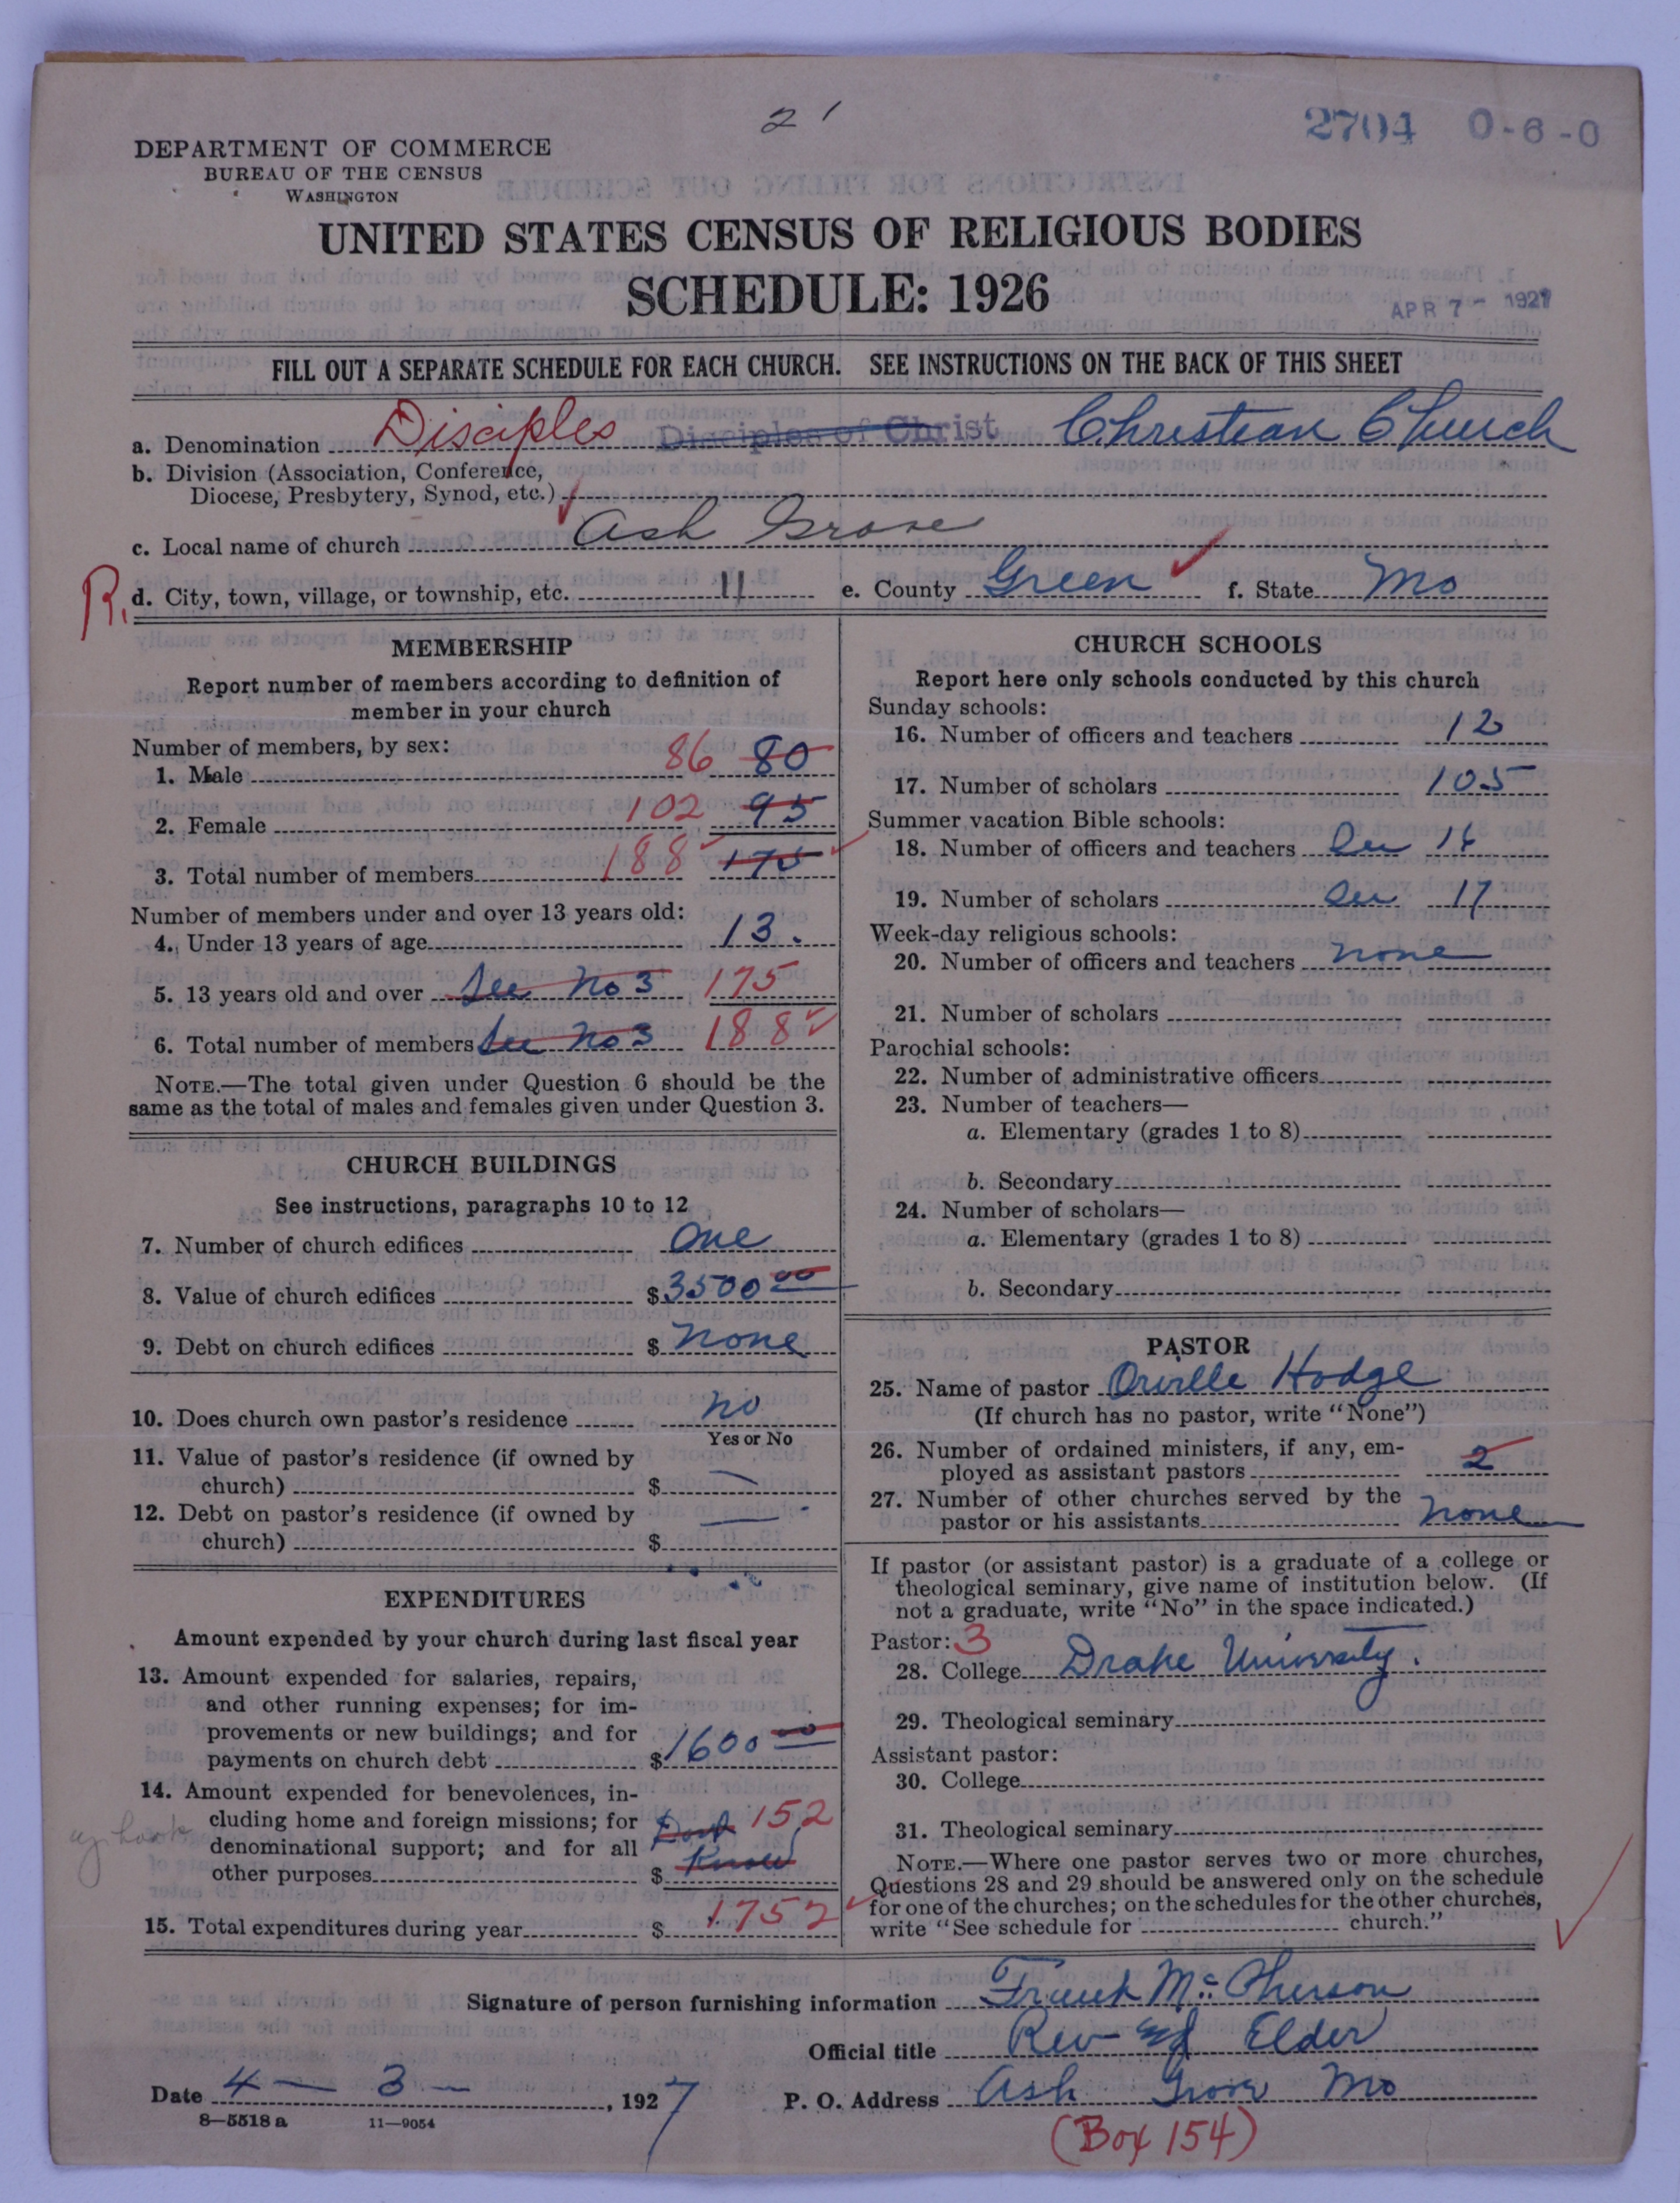 21
2704 0-6-0
DEPARTMENT OF COMMERCE
BUREAU OF THE CENSUS
WASHINGTON
UNITED STATES CENSUS OF RELIGIOUS BODIES
SCHEDULE: 1926
APR 7 - 1927
FILL OUT A SEPARATE SCHEDULE FOR EACH CHURCH. SEE INSTRUCTIONS ON THE BACK OF THIS SHEET
a. Denomination Disciples Disciples of Christ Christian Church
b. Division (Association, Conference,
Diocese, Presbytery, Synod, etc.)
c. Local name of church Ash Grove
R. d. City, town, village, or township, etc. 11 e. County Green f. State Mo
MEMBERSHIP
Report number of members according to definition of
member in your church
Number of members, by sex:
1. Male 86 80
2. Female 102 95
3. Total number of members 188 175
Number of members under and over 13 years old:
4. Under 13 years of age 13.
5. 13 years old and over See No 3 175
6. Total number of members See No 3 188
NOTE.—The total given under Question 6 should be the
same as the total of males and females given under Question 3.
CHURCH BUILDINGS
See instructions, paragraphs 10 to 12
7. Number of church edifices One
8. Value of church edifices $3500 00
9. Debt on church edifices $ None
10. Does church own pastor's residence No
Yes or No
11. Value of pastor's residence (if owned by
church) $ —
12. Debt on pastor's residence (if owned by
church) $ —
EXPENDITURES
Amount expended by your church during last fiscal year
13. Amount expended for salaries, repairs,
and other running expenses; for im-
provements or new buildings; and for
payments on church debt $1600 00
14. Amount expended for benevolences, in-
cluding home and foreign missions; for
denominational support; and for all
other purposes $ Dont Know 152
15. Total expenditures during year $ 1752
CHURCH SCHOOLS
Report here only schools conducted by this church
Sunday schools:
16. Number of officers and teachers 12
17. Number of scholars 105
Summer vacation Bible schools:
18. Number of officers and teachers See 16
19. Number of scholars See 17
Week-day religious schools:
20. Number of officers and teachers None
21. Number of scholars
Parochial schools:
22. Number of administrative officers
23. Number of teachers—
a. Elementary (grades 1 to 8)
b. Secondary
24. Number of scholars—
a. Elementary (grades 1 to 8)
b. Secondary
PASTOR
25. Name of pastor Orville Hodge
(If church has no pastor, write "None")
26. Number of ordained ministers, if any, em-
ployed as assistant pastors 2
27. Number of other churches served by the
pastor or his assistants None
If pastor (or assistant pastor) is a graduate of a college or
theological seminary, give name of institution below. (If
not a graduate, write "No" in the space indicated.)
Pastor: 3
28. College Drake University.
29. Theological seminary
Assistant pastor:
30. College
31. Theological seminary
NOTE.—Where one pastor serves two or more churches,
Questions 28 and 29 should be answered only on the schedule
for one of the churches; on the schedules for the other churches,
write "See schedule for church."
Signature of person furnishing information Frank McPherson
Official title Rev Elder
Date 4 — 3 —, 1927 P. O. Address Ash Grove Mo
8—5518 a 11—9054
(Box 154)